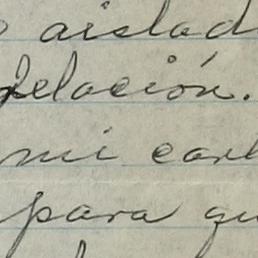 o aislad
Relación.
mi carl
para qu